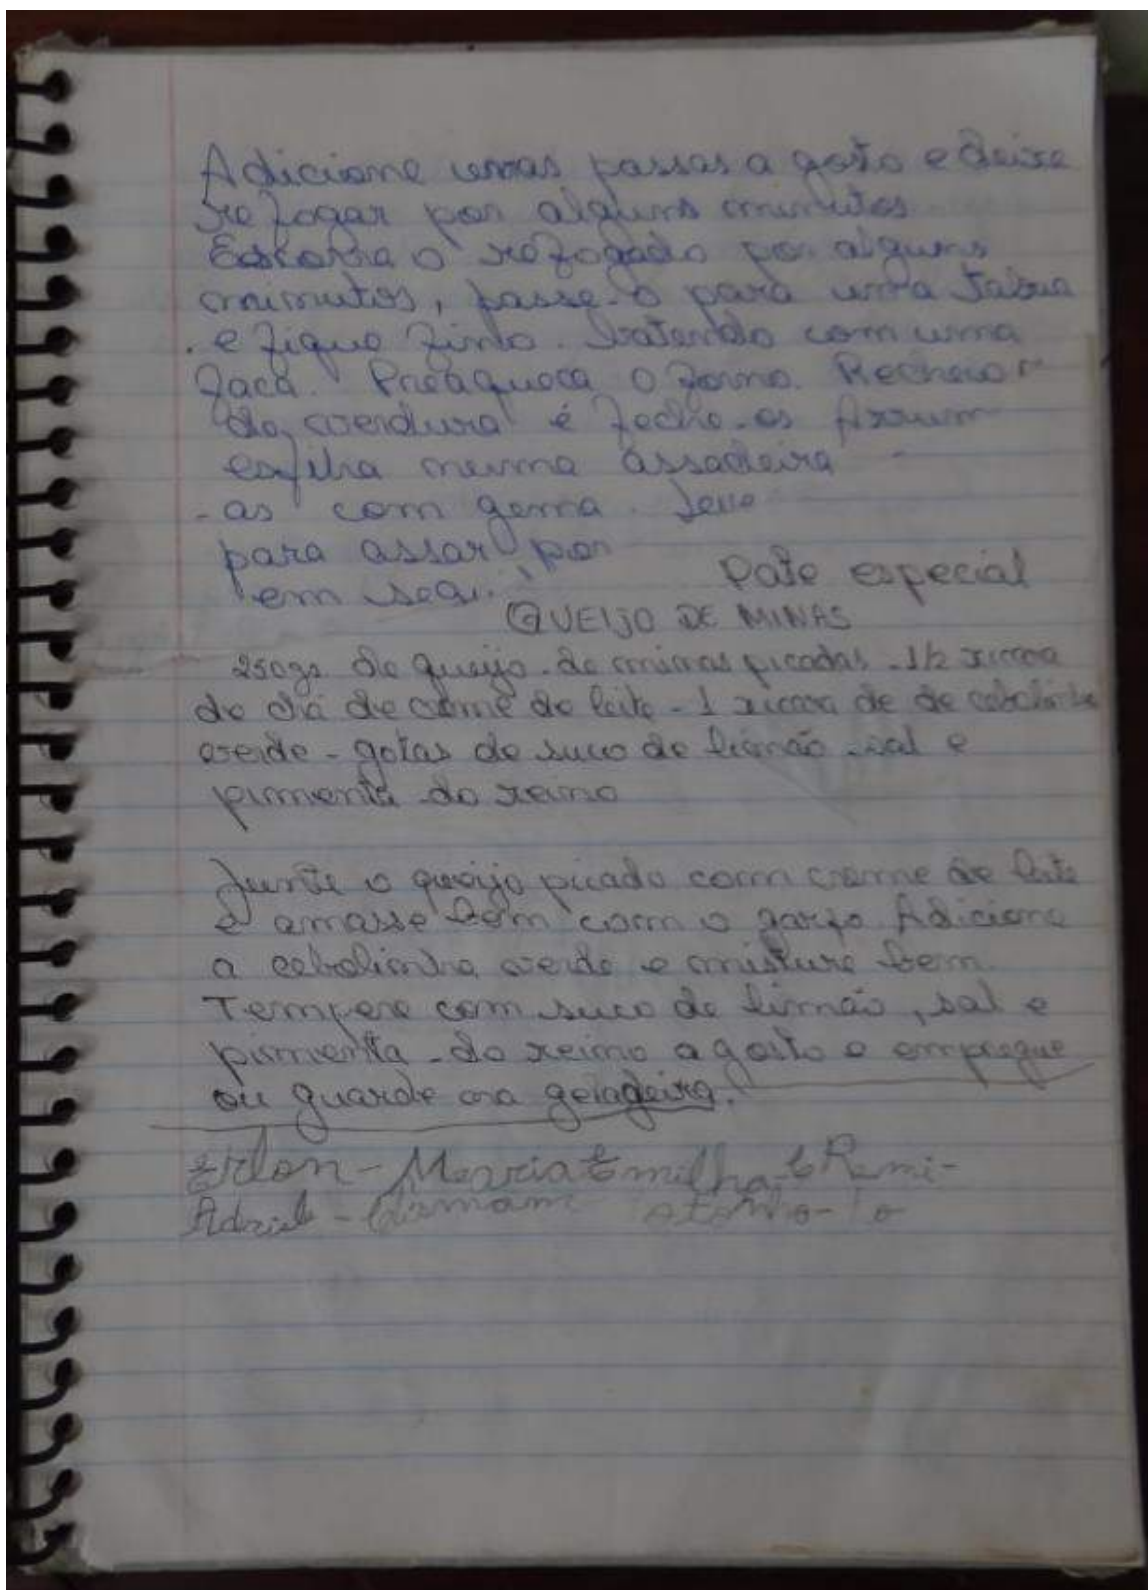 Adicione umas passas a gosto e deixe
refogar por alguns minutos
Escorra o refogado por alguns
minutos, passe-o para uma tabua
e fique finto. batendo com uma
faca. Preaqueca o forno. Rechear
da verdura é feche-os Arrum
esfilha numa assadeira
-as com gema. Leve
para assar por
em segui
Pate especial
QUEIJO DE MINAS
250gs de queijo-de minas picadas - 1/2 xicara
de chá de creme de leite - 1 xicara de de cebolinha
verde - gotas de suco de limão - sal e
pimenta-do reino
Junte o queijo picado com creme de leite
e amasse bem com o garfo Adicione
a cebolinha verde e misture bem
Tempere com suco de limão, sal e
pimenta-do reino a gosto e empregue
ou guarde na geladeira.
Erlon - Maria Emilha - Remi-
Adriel -